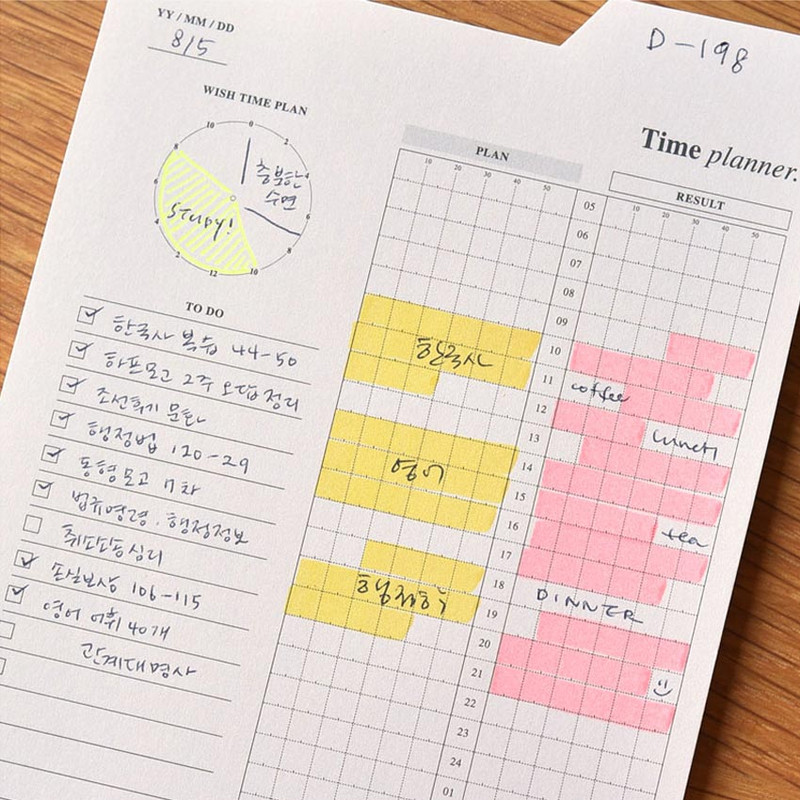 YY / MM / DD
8/5
D-198
WISH TIME PLAN
0
2
4
6
8
10
12
2
4
6
8
10
충분한
수면
STUDY!
Time planner.
PLAN
10 20 30 40 50
RESULT
10 20 30 40 50
TO DO
한국사 복습 44-50
하프모고 2주 오답정리
조선후기 문화
행정법 120-29
동형모고 7차
법규명령, 행정정보
손실보상 106-115
영어 어휘 40개
관계대명사
05
06
07
08
09
10
11
12
13
14
15
16
17
18
19
20
21
22
23
24
01
한국사
영어
coffee
lunch
tea
DINNER